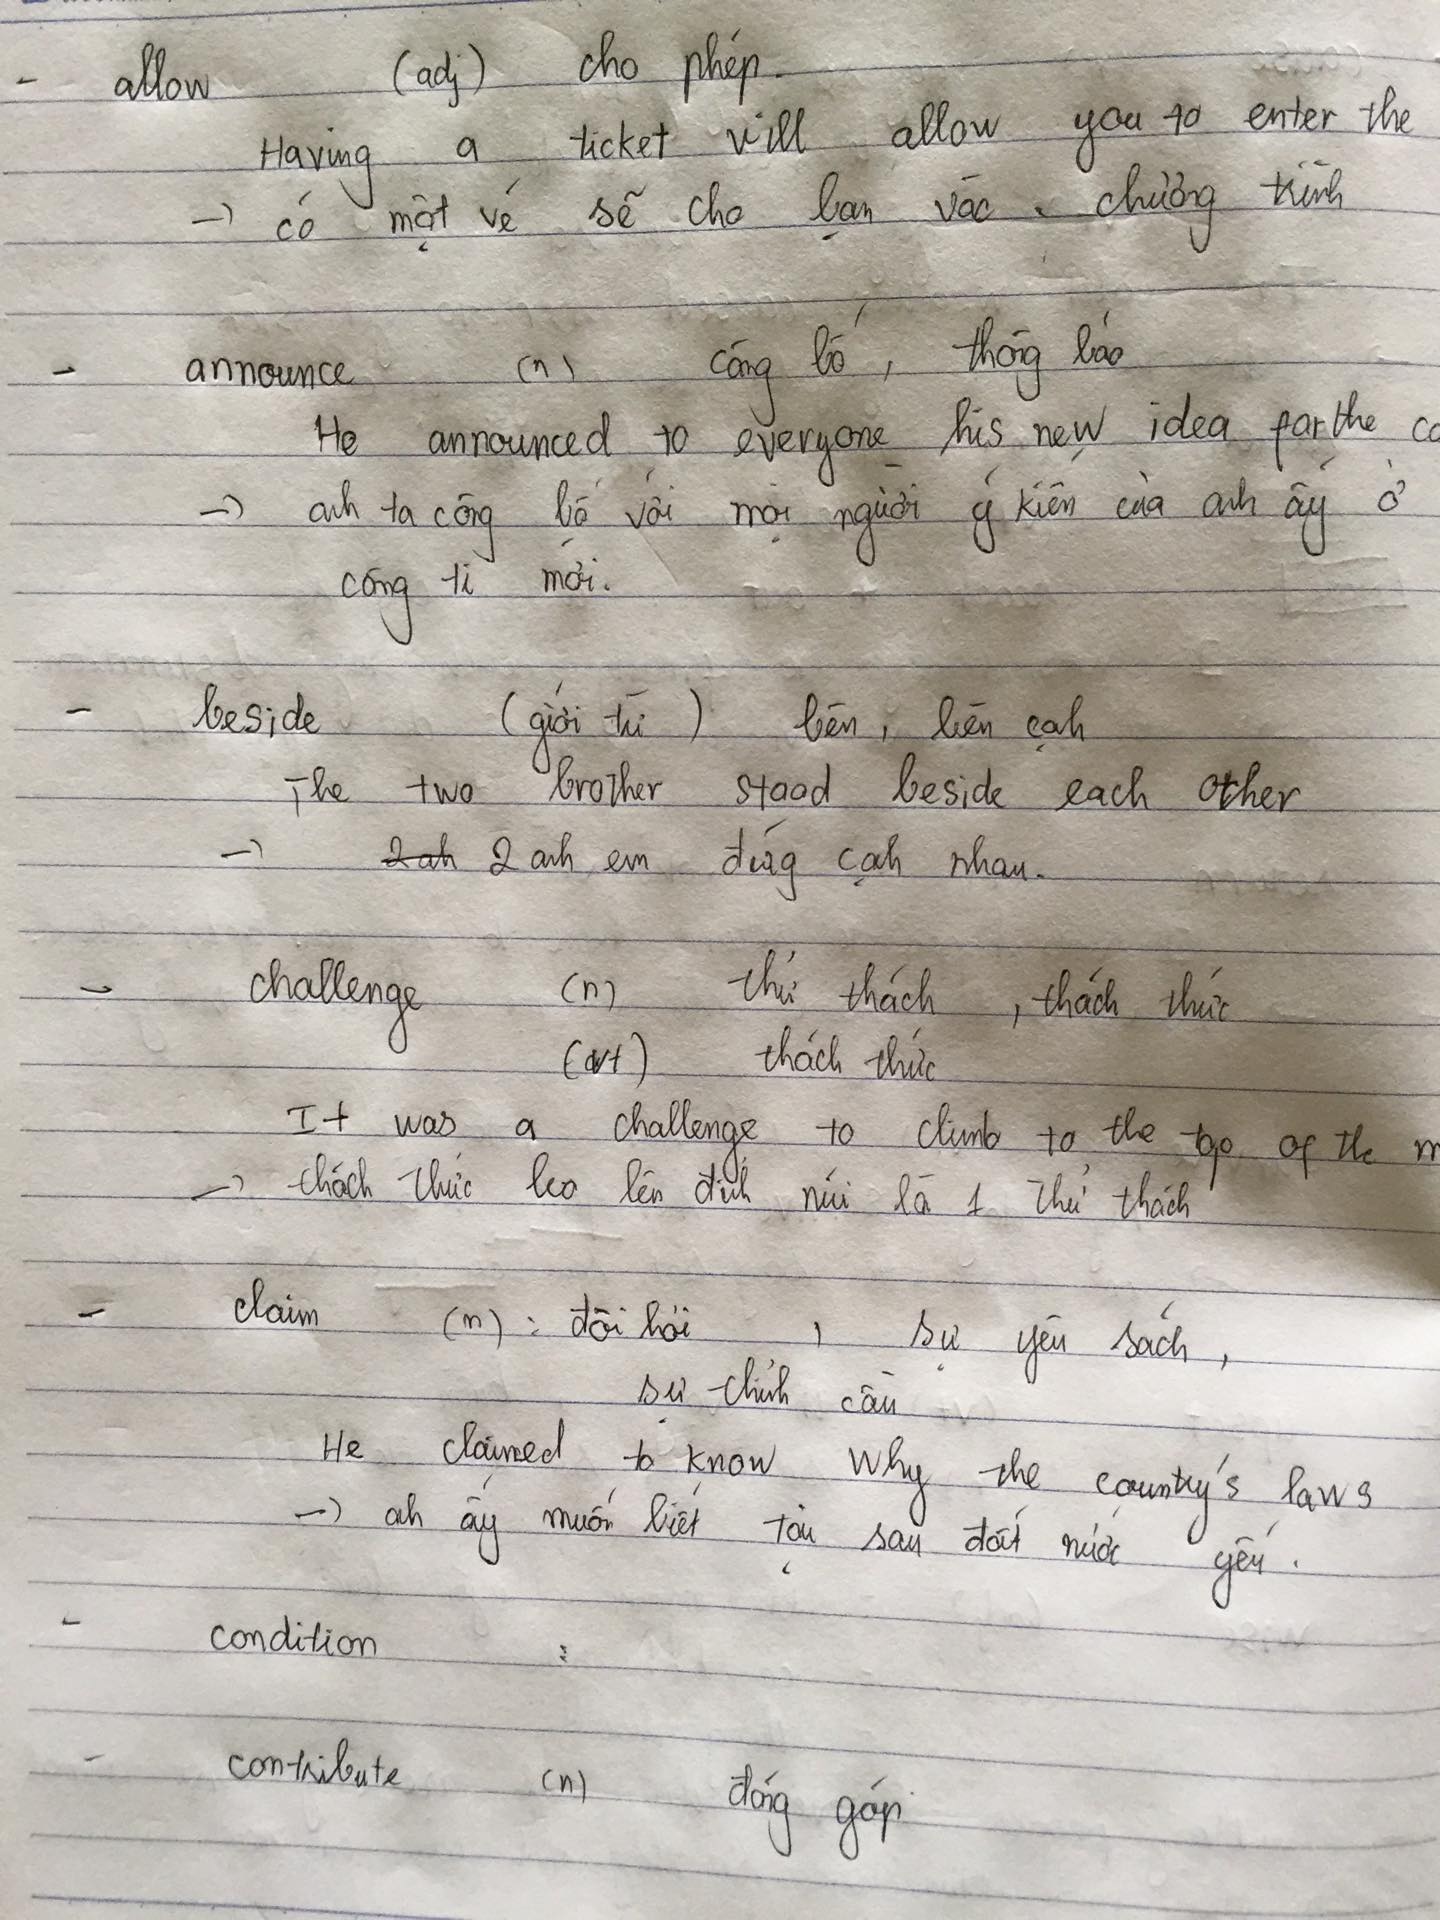 - allow (adj) cho phép.
Having a ticket will allow you to enter the
→ có một vé sẽ cho bạn vào chương trình
- announce (n) công bố, thông báo
He announced to everyone his new idea for the co
→ anh ta công bố với mọi người ý kiến của anh ấy ở
công ti mới.
- beside (giới từ) bên, bên cạnh
The two brother stood beside each other
→ 2 anh em đứng cạnh nhau.
- challenge (n) thử thách, thách thức
(vt) thách thức
It was a challenge to climb to the top of the m
→ thách thức leo lên đỉnh núi là 1 thử thách
- claim (n): đòi hỏi, sự yêu sách,
sự thỉnh cầu
He claimed to know why the country's laws
→ anh ấy muốn biết tại sao đất nước yếu.
- condition :
- contribute (n) đóng góp